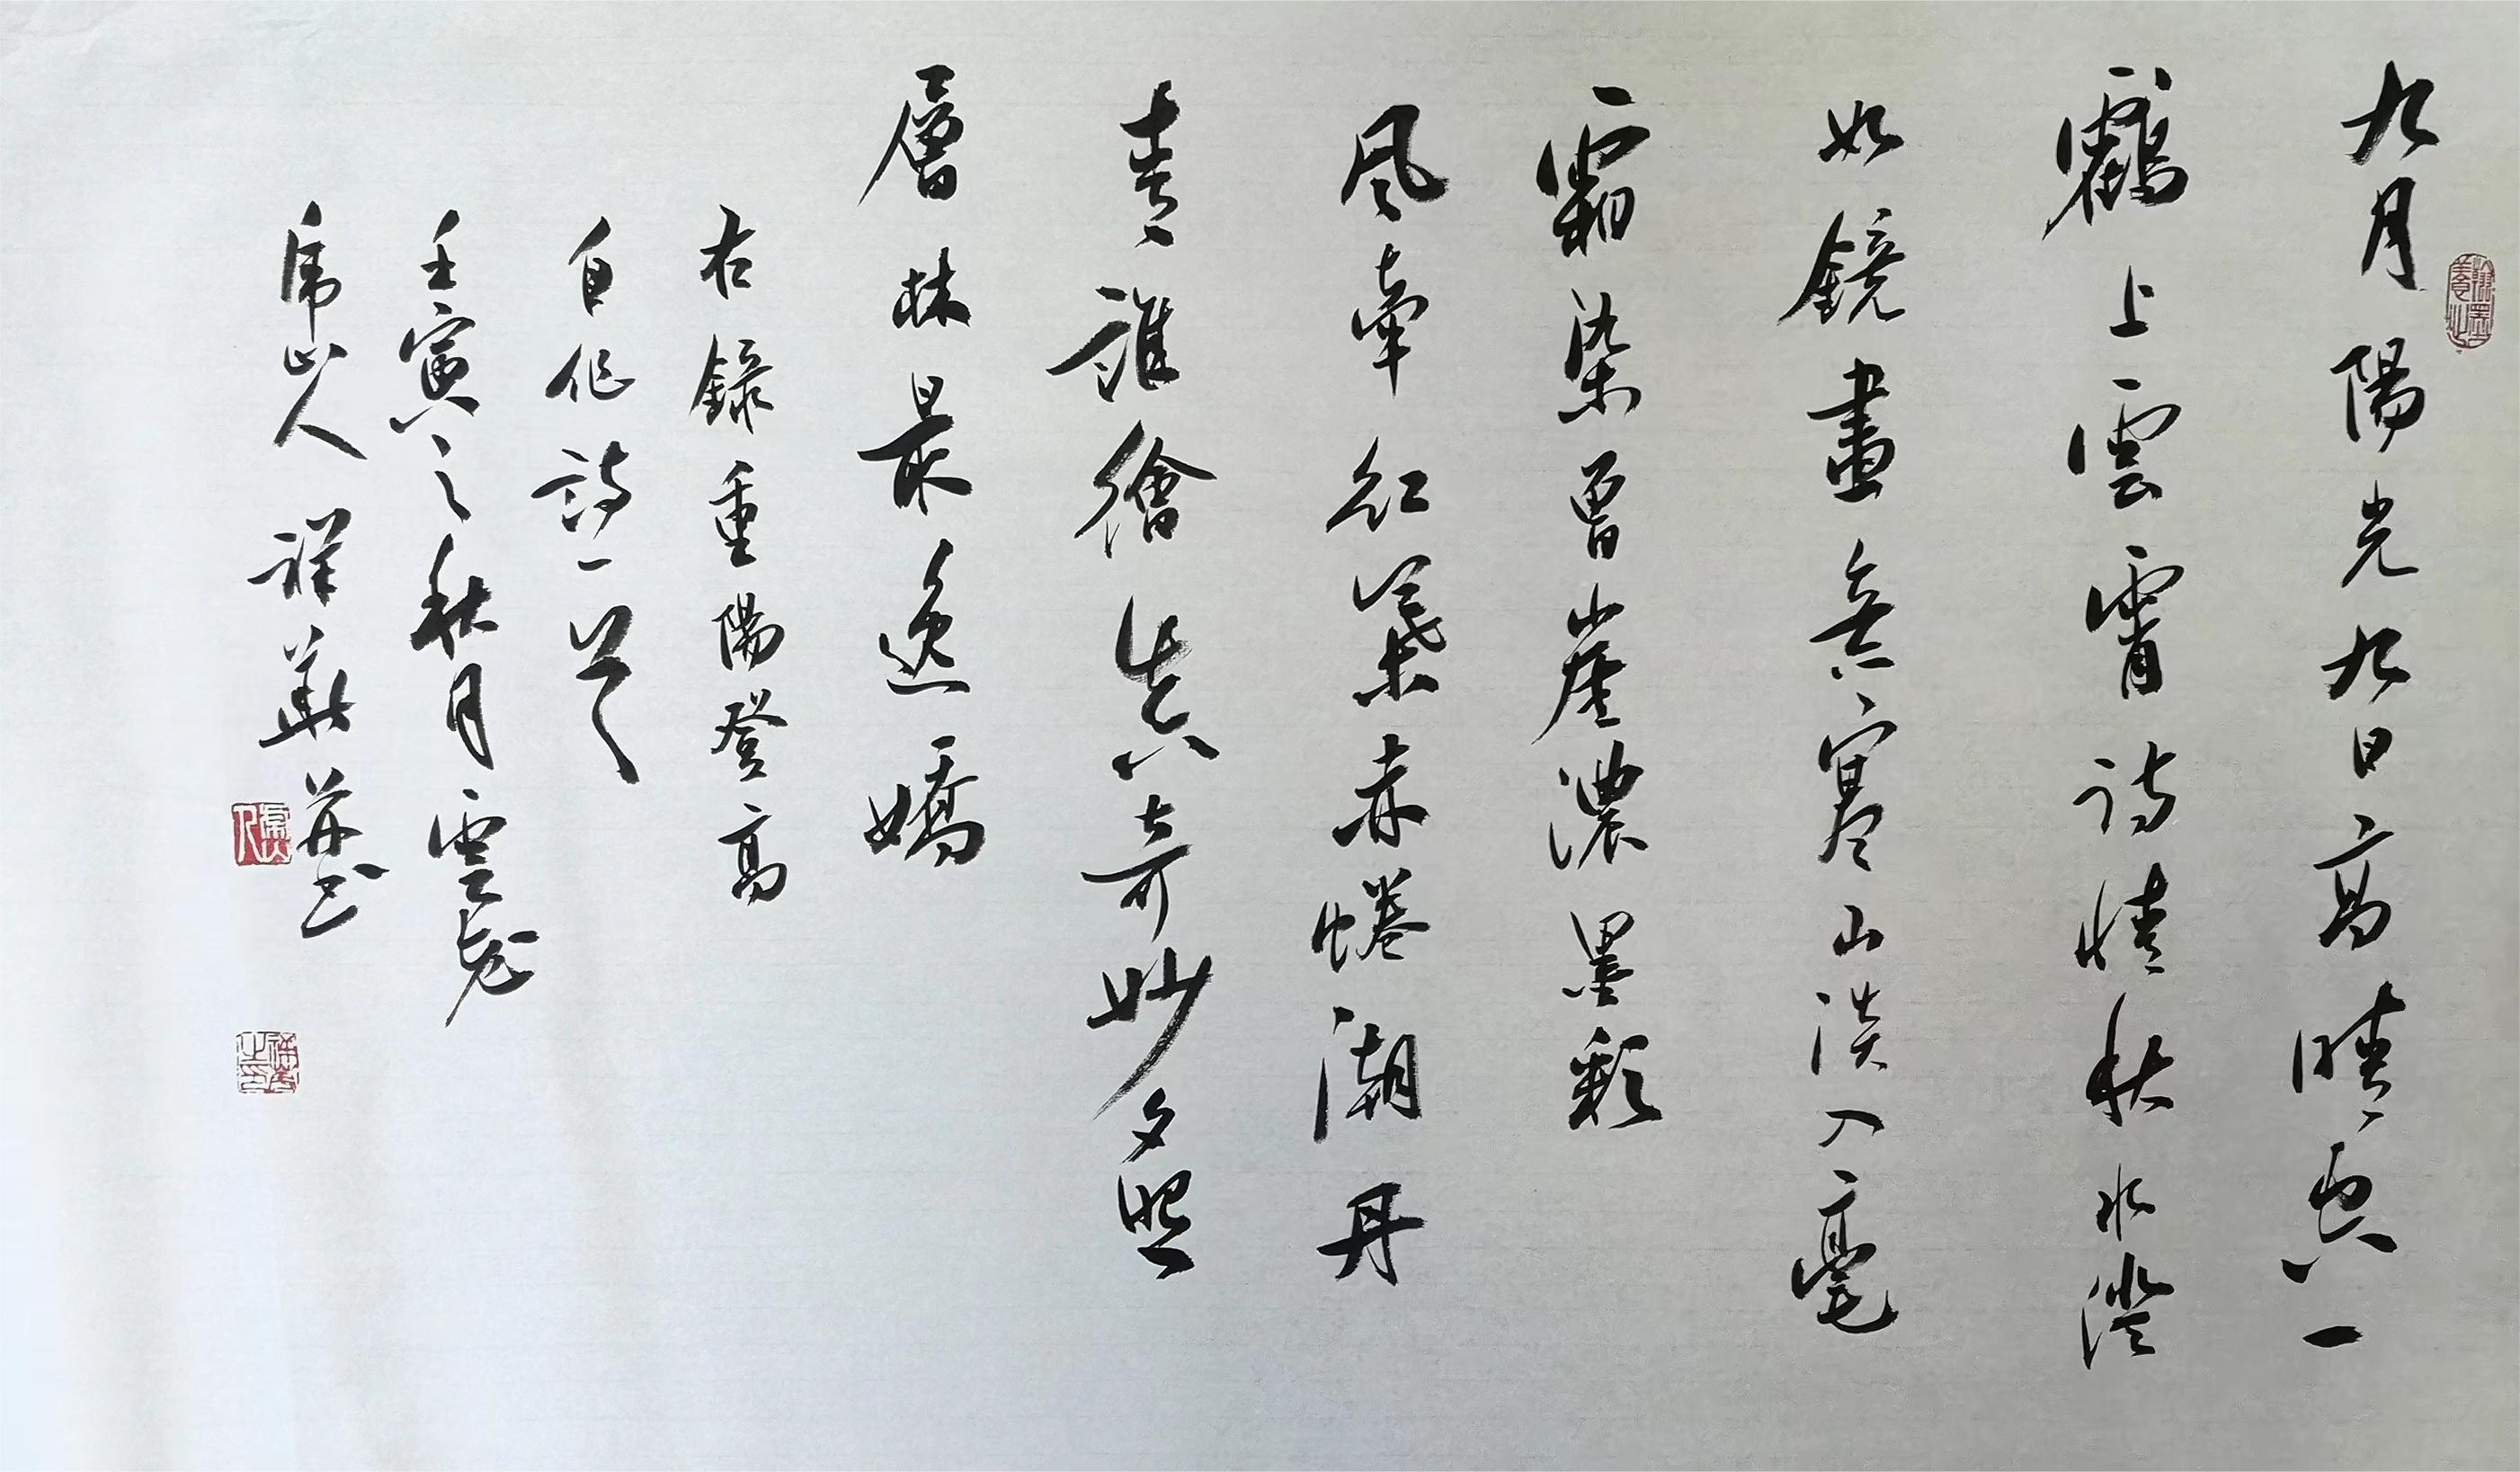 九月陽光九日高晴空一
鶴上雲霄詩情秋水澄
如鏡畫意寒山淡入毫
霜染曾崖濃墨彩
風牽紅葉赤潮丹
青誰繪真奇妙夕照
層林最逸嬌
右錄重陽登高
自作詩一首
壬寅之秋月雲
山人祥華並书